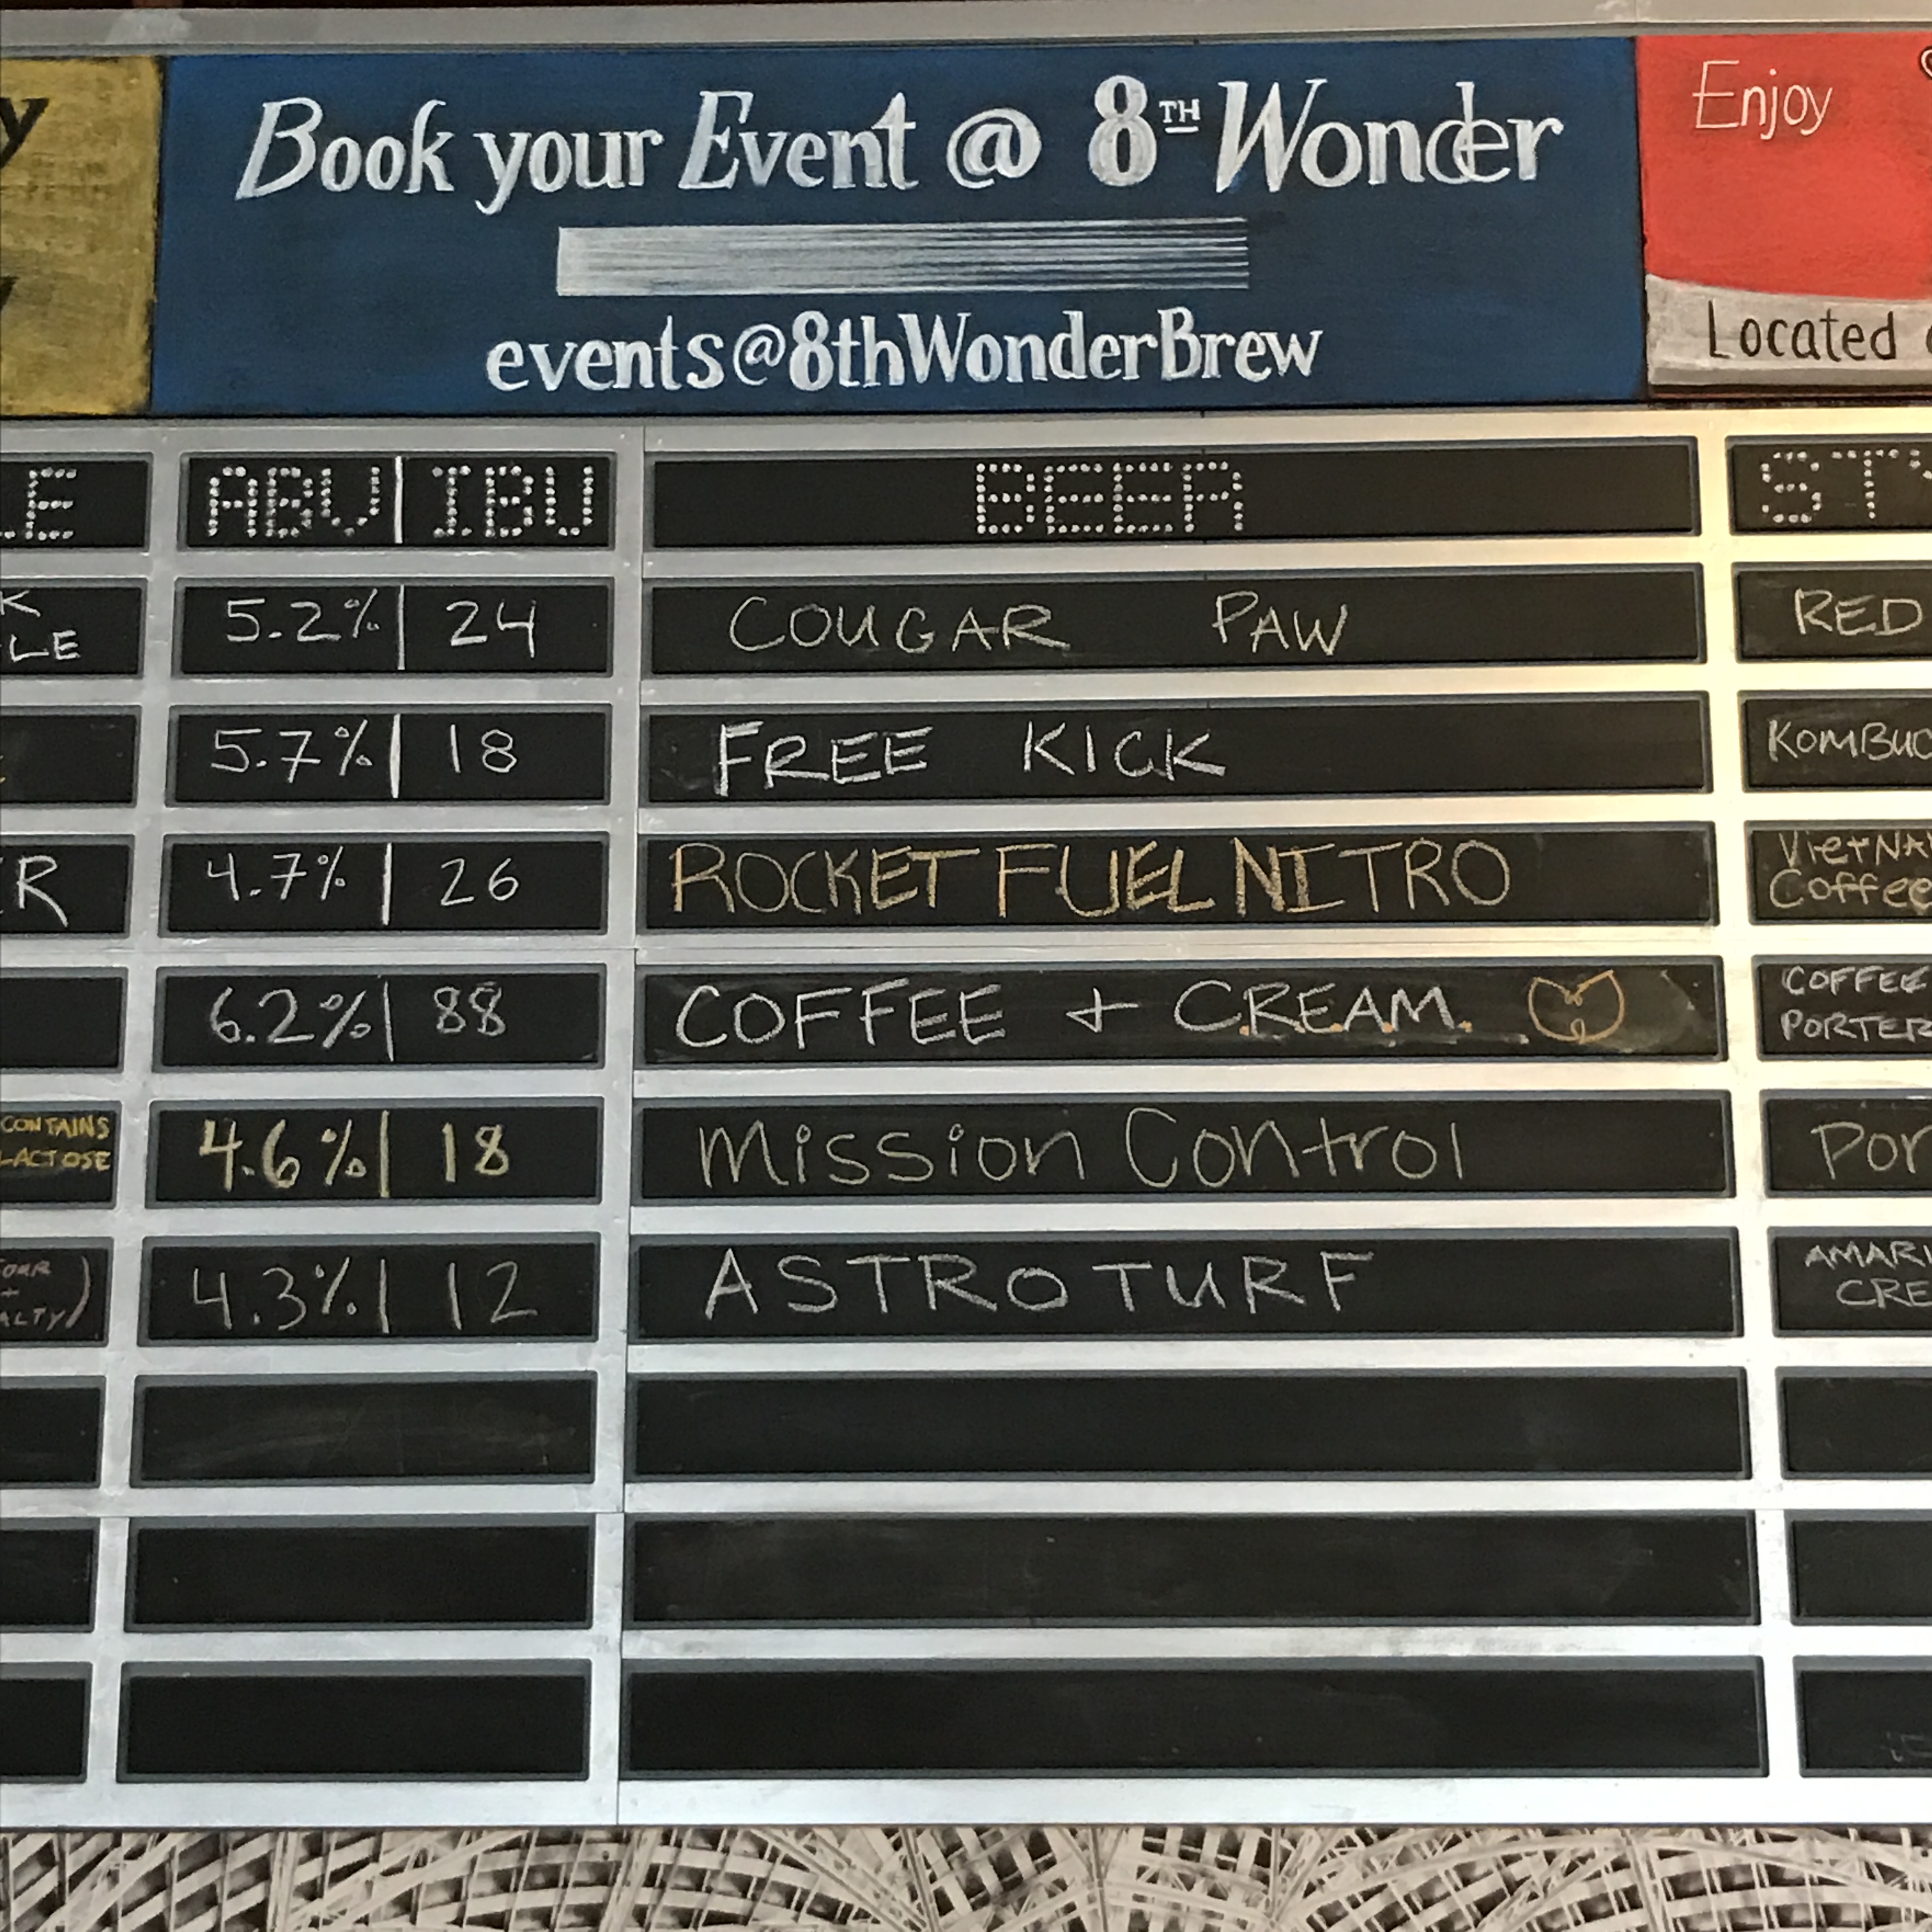 Book your Event @ 8TH Wonder
events@8thWonderBrew
Enjoy
Located
ABV | IBU BEER
5.2% | 24 COUGAR PAW RED
5.7% | 18 FREE KICK
4.7% | 26 ROCKET FUEL NITRO
Coffee
6.2% | 88 COFFEE + C.R.E.A.M. COFFEE
PORTER
CONTAINS
LACTOSE
4.6% | 18 Mission Control
4.3% | 12 ASTRO TURF